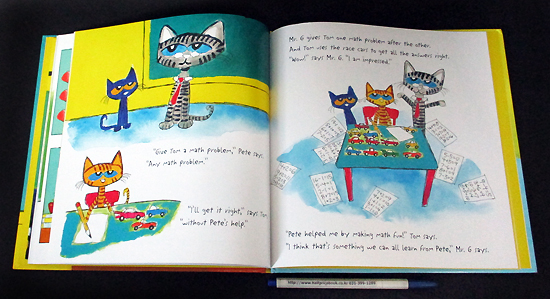 "Give Tom a math problem," Pete says.
"Any math problem."
"I'll get it right," says Tom,
"without Pete's help."
Mr. G gives Tom one math problem after the other.
And Tom uses the race cars to get all the answers right.
"Wow!" says Mr. G. "I am impressed."
"Pete helped me by making math fun!" Tom says.
"I think that's something we can all learn from Pete," Mr. G says.